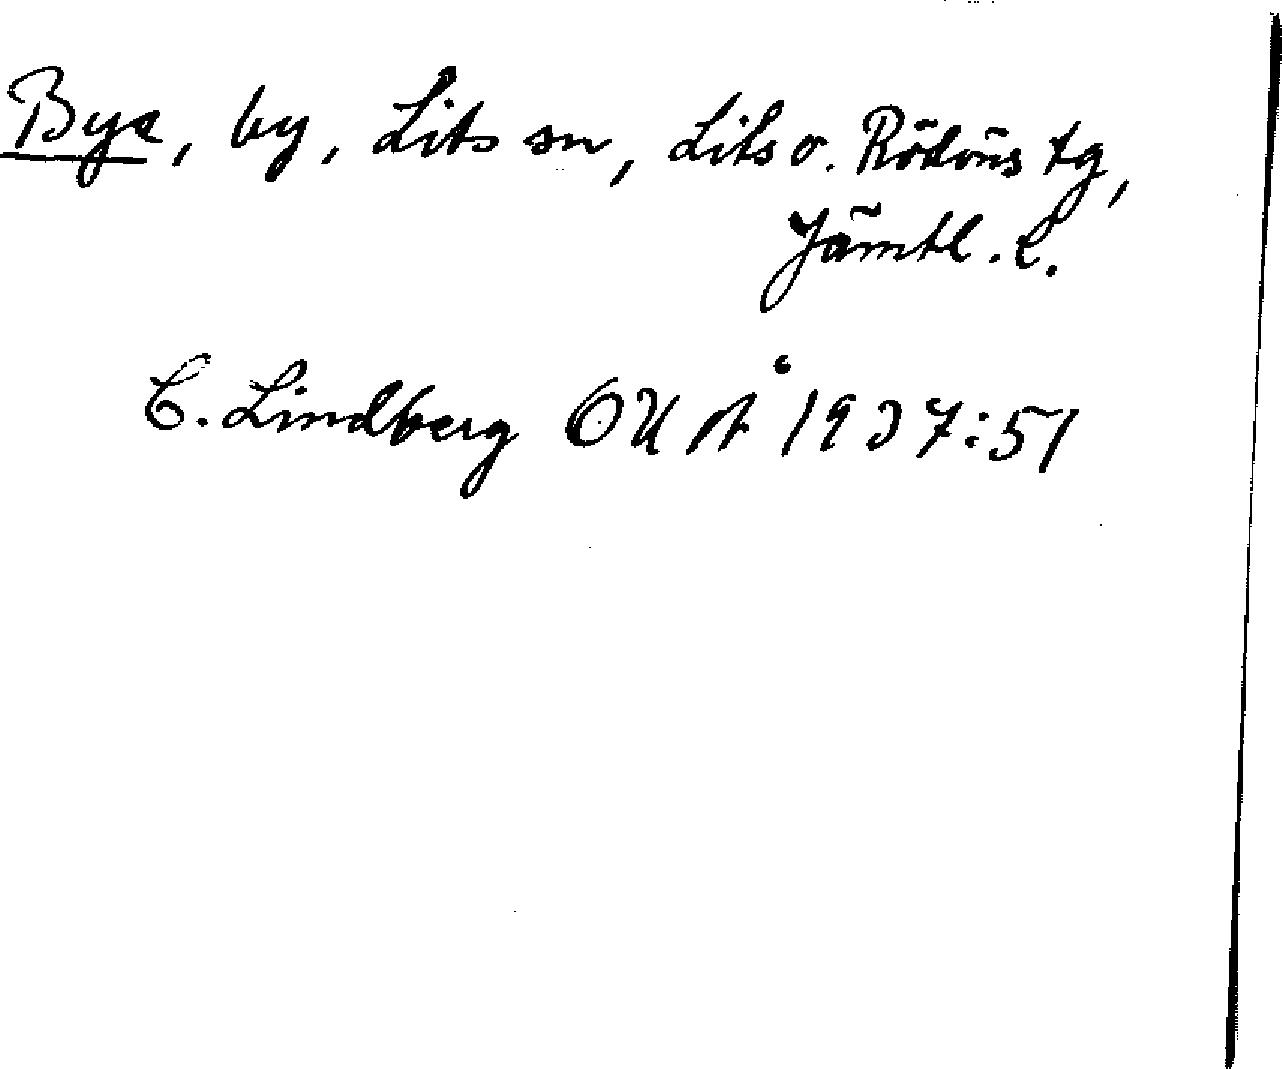 Bye, by, Lits sn, Lits o. Rödöns tg,
Jämtl. L.
C. Lindberg OUÅ 1937:51